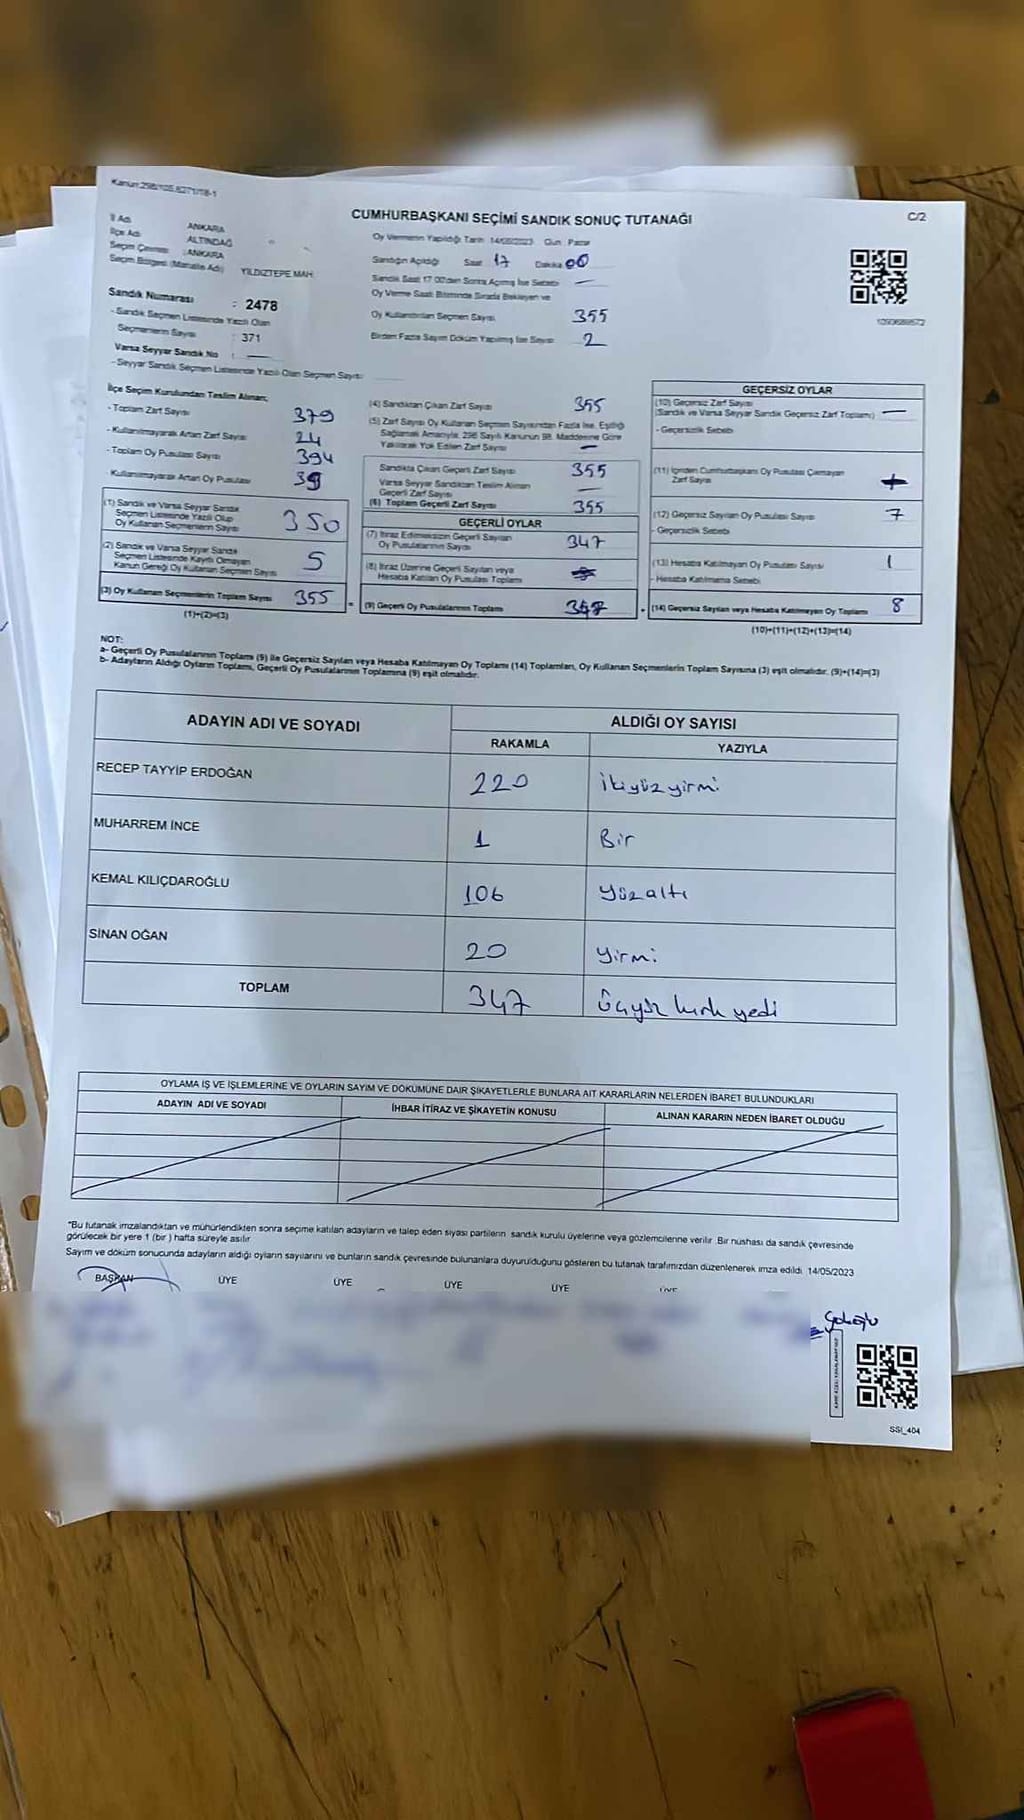 Kanun:298/105,6271/18-1
CUMHURBAŞKANI SEÇİMİ SANDIK SONUÇ TUTANAĞI
C/2
İl Adı ANKARA
İlçe Adı ALTINDAĞ
Seçim Çevresi : ANKARA
Seçim Bölgesi (Mahalle Adı) YILDIZTEPE MAH.
Sandık Numarası : 2478
- Sandık Seçmen Listesinde Yazılı Olan
Seçmenlerin Sayısı : 371
Varsa Seyyar Sandık No : —
- Seyyar Sandık Seçmen Listesinde Yazılı Olan Seçmen Sayısı
Oy Vermenin Yapıldığı Tarih 14/05/2023 Gün Pazar
Sandığın Açıldığı Saat 17 Dakika 00
Sandık Saat 17.00'den Sonra Açılmış İse Sebebi —
Oy Verme Saati Bitiminde Sırada Bekleyen ve
Oy Kullandırılan Seçmen Sayısı 355
Birden Fazla Sayım Döküm Yapılmış İse Sayısı 2
İlçe Seçim Kurulundan Teslim Alınan;
- Toplam Zarf Sayısı 379
- Kullanılmayarak Artan Zarf Sayısı 24
- Toplam Oy Pusulası Sayısı 394
- Kullanılmayarak Artan Oy Pusulası 39
(1) Sandık ve Varsa Seyyar Sandık
Seçmen Listesinde Yazılı Olup
Oy Kullanan Seçmenlerin Sayısı 350
(2) Sandık ve Varsa Seyyar Sandık
Seçmen Listesinde Kayıtlı Olmayan
Kanun Gereği Oy Kullanan Seçmen Sayısı 5
(3) Oy Kullanan Seçmenlerin Toplam Sayısı 355
(1)+(2)=(3)
(4) Sandıktan Çıkan Zarf Sayısı 355
(5) Zarf Sayısı Oy Kullanan Seçmen Sayısından Fazla İse, Eşitliği
Sağlamak Amacıyla 298 Sayılı Kanunun 98. Maddesine Göre
Yakılarak Yok Edilen Zarf Sayısı —
Sandıkta Çıkan Geçerli Zarf Sayısı 355
Varsa Seyyar Sandıktan Teslim Alınan
Geçerli Zarf Sayısı —
(6) Toplam Geçerli Zarf Sayısı 355
GEÇERLİ OYLAR
(7) İtiraz Edilmeksizin Geçerli Sayılan
Oy Pusulalarının Sayısı 347
(8) İtiraz Üzerine Geçerli Sayılan veya
Hesaba Katılan Oy Pusulası Toplamı
(9) Geçerli Oy Pusulalarının Toplamı 347
GEÇERSİZ OYLAR
(10) Geçersiz Zarf Sayısı
(Sandık ve Varsa Seyyar Sandık Geçersiz Zarf Toplamı) —
- Geçersizlik Sebebi
(11) İçinden Cumhurbaşkanı Oy Pusulası Çıkmayan
Zarf Sayısı
(12) Geçersiz Sayılan Oy Pusulası Sayısı 7
- Geçersizlik Sebebi
(13) Hesaba Katılmayan Oy Pusulası Sayısı 1
- Hesaba Katılmama Sebebi
(14) Geçersiz Sayılan veya Hesaba Katılmayan Oy Toplamı 8
(10)+(11)+(12)+(13)=(14)
NOT:
a- Geçerli Oy Pusulalarının Toplamı (9) ile Geçersiz Sayılan veya Hesaba Katılmayan Oy Toplamı (14) Toplamları, Oy Kullanan Seçmenlerin Toplam Sayısına (3) eşit olmalıdır. (9)+(14)=(3)
b- Adayların Aldığı Oyların Toplamı, Geçerli Oy Pusulalarının Toplamına (9) eşit olmalıdır.
ADAYIN ADI VE SOYADI
ALDIĞI OY SAYISI
RAKAMLA YAZIYLA
RECEP TAYYİP ERDOĞAN 220 İkiyüzyirmi
MUHARREM İNCE 1 Bir
KEMAL KILIÇDAROĞLU 106 Yüzaltı
SİNAN OĞAN 20 Yirmi
TOPLAM 347 Üçyüz kırk yedi
OYLAMA İŞ VE İŞLEMLERİNE VE OYLARIN SAYIM VE DÖKÜMÜNE DAİR ŞİKAYETLERLE BUNLARA AİT KARARLARIN NELERDEN İBARET BULUNDUKLARI
ADAYIN ADI VE SOYADI İHBAR İTİRAZ VE ŞİKAYETİN KONUSU ALINAN KARARIN NEDEN İBARET OLDUĞU
"Bu tutanak imzalandıktan ve mühürlendikten sonra seçime katılan adayların ve talep eden siyasi partilerin sandık kurulu üyelerine veya gözlemcilerine verilir. Bir nüshası da sandık çevresinde
görülecek bir yere 1 (bir ) hafta süreyle asılır.
Sayım ve döküm sonucunda adayların aldığı oyların sayılarını ve bunların sandık çevresinde bulunanlara duyurulduğunu gösteren bu tutanak tarafımızdan düzenlenerek imza edildi. 14/05/2023
BAŞKAN ÜYE ÜYE ÜYE ÜYE ÜYE
SSI_404